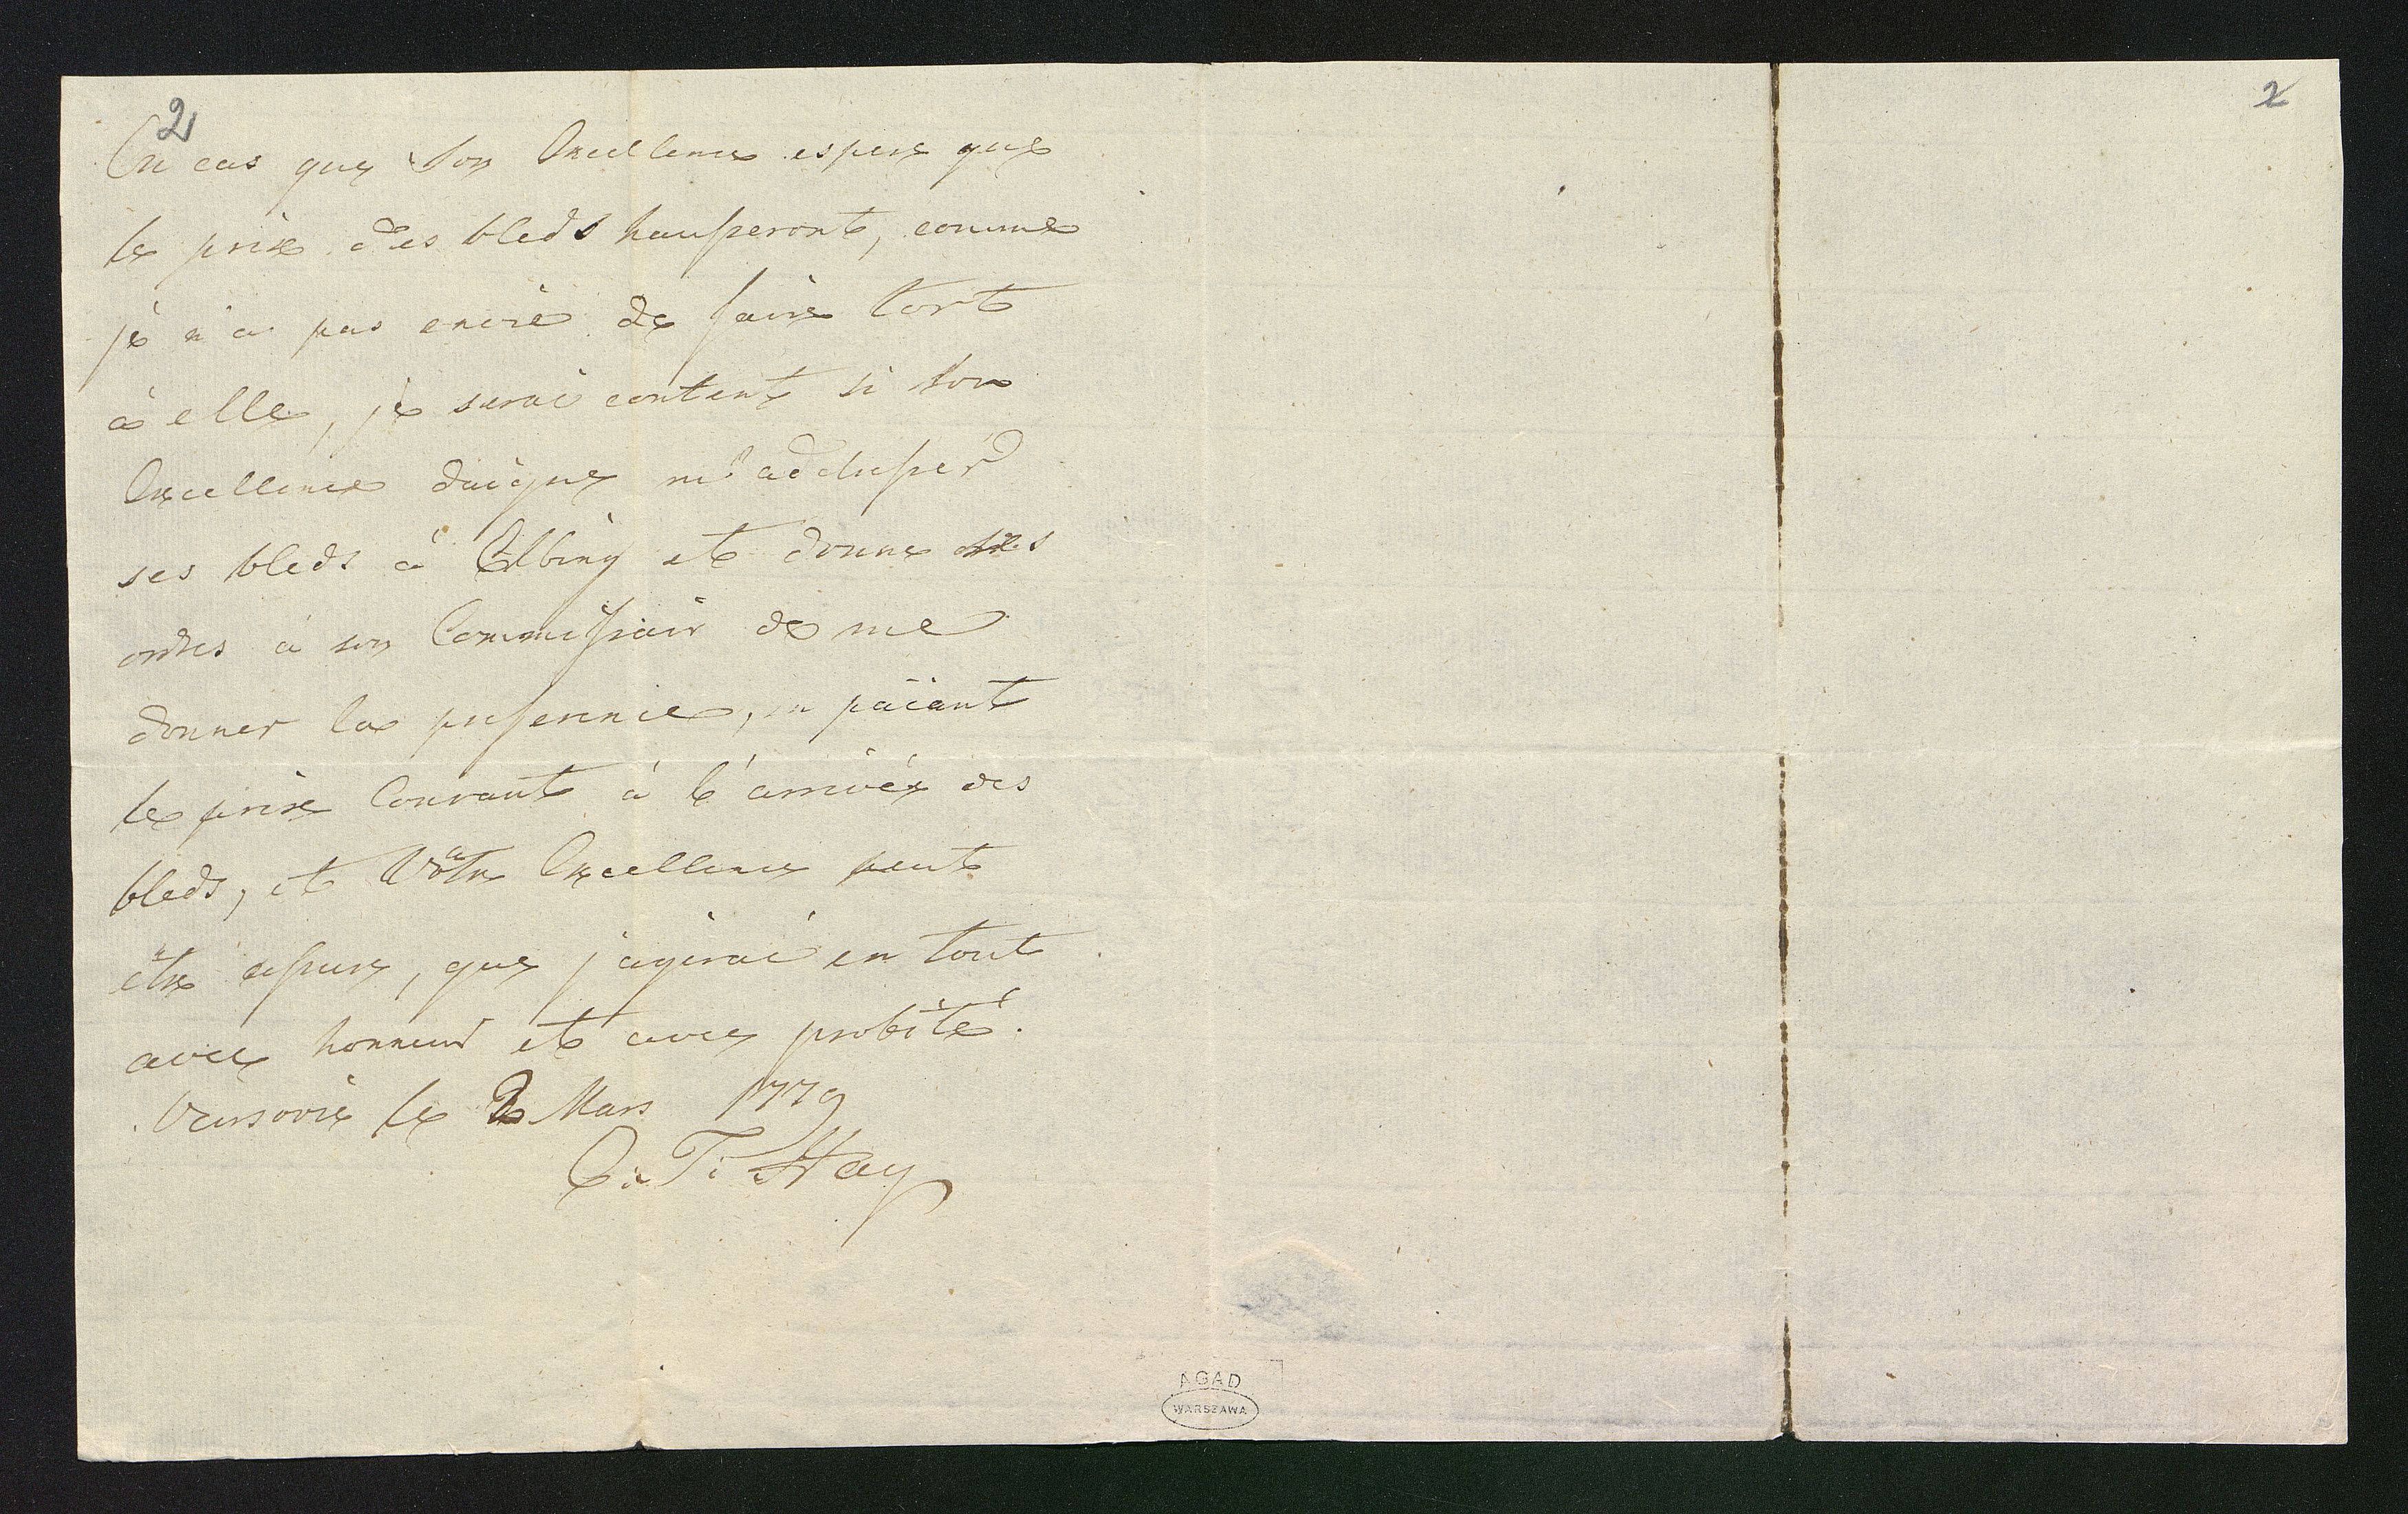 2
2
En cas que Son Excellence espere que
le prix des bleds hausseront, comme
je n'a pas envie de faire tort
à elle, je serai content si Son
Excellence daigne m'addresser
ses bleds à Elbing et donne ses
ordres à son Commissair de me
donner la preference, en païant
le prix Courant à l'arrivée des
bleds, et Vôtre Excellence peut
être assure, que j'agirai en tout
avec honneur et avec probité.
Varsovie le 2 Mars 1779
C. T. Hay
AGAD
WARSZAWA